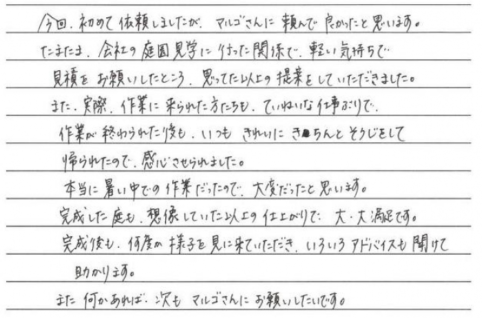 今回、初めて依頼しましたが、マルゴさんに頼んで良かったと思います。
たまたま、会社の庭園見学に行った関係で、軽い気持ちで
見積をお願いしたところ、思ってた以上の提案をしていただきました。
また、実際、作業に来られた方たちも、ていねいな仕事ぶりで、
作業が終わられた後も、いつもきれいにきちんとそうじをして
帰られたので、感心させられました。
本当に暑い中での作業だったので、大変だったと思います。
完成した庭も、想像していた以上の仕上がりで大・大満足です。
完成後も、何度か様子を見に来ていただき、いろいろアドバイスも聞けて
助かります。
また何かあれば、次もマルゴさんにお願いしたいです。